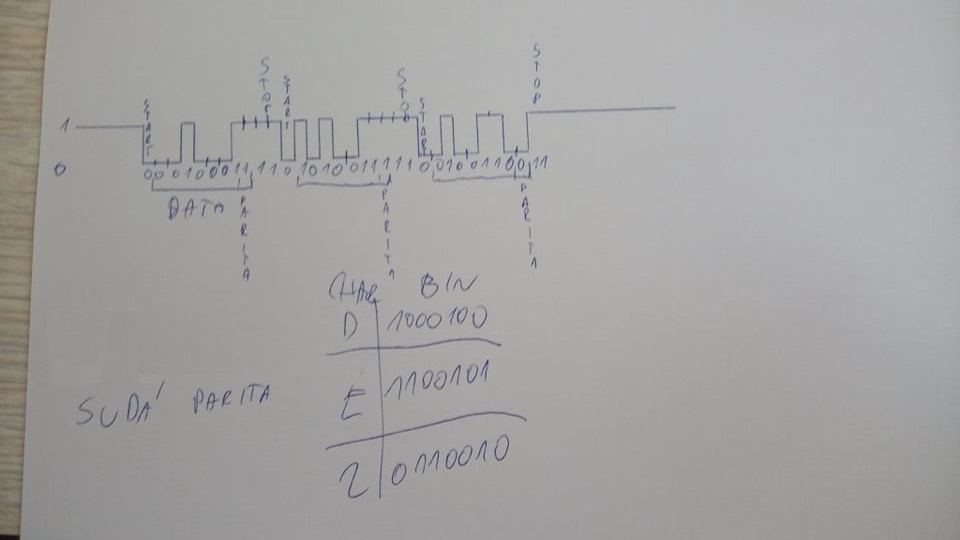 START STOP START STOP START STOP
1
0 000100011110101001111100100110011
DATA PARITA PARITA PARITA
CHAR BIN
D 1000100
E 1100101
SUDÁ PARITA
2 0110010